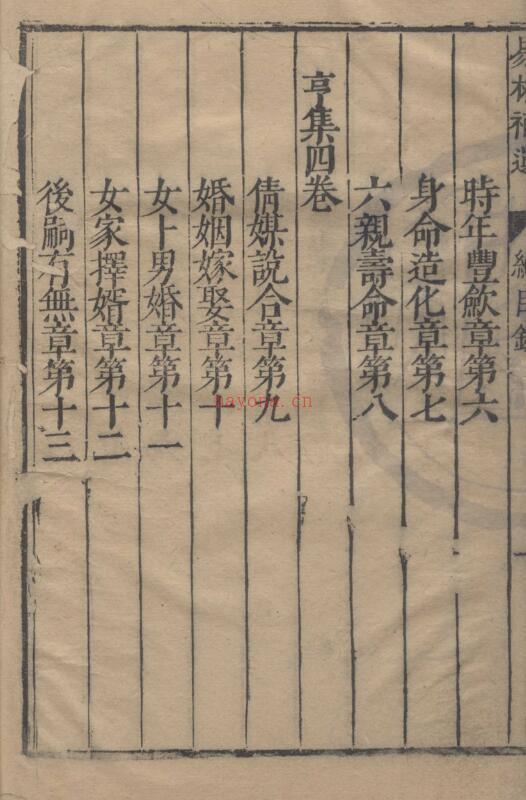 易林補遺 總目錄 一
時年豐歉章第六
身命造化章第七
六親壽命章第八
亨集四卷
倩媒說合章第九
婚姻嫁娶章第十
女卜男婚章第十一
女家擇婿章第十二
後嗣有無章第十三
nayona.cn